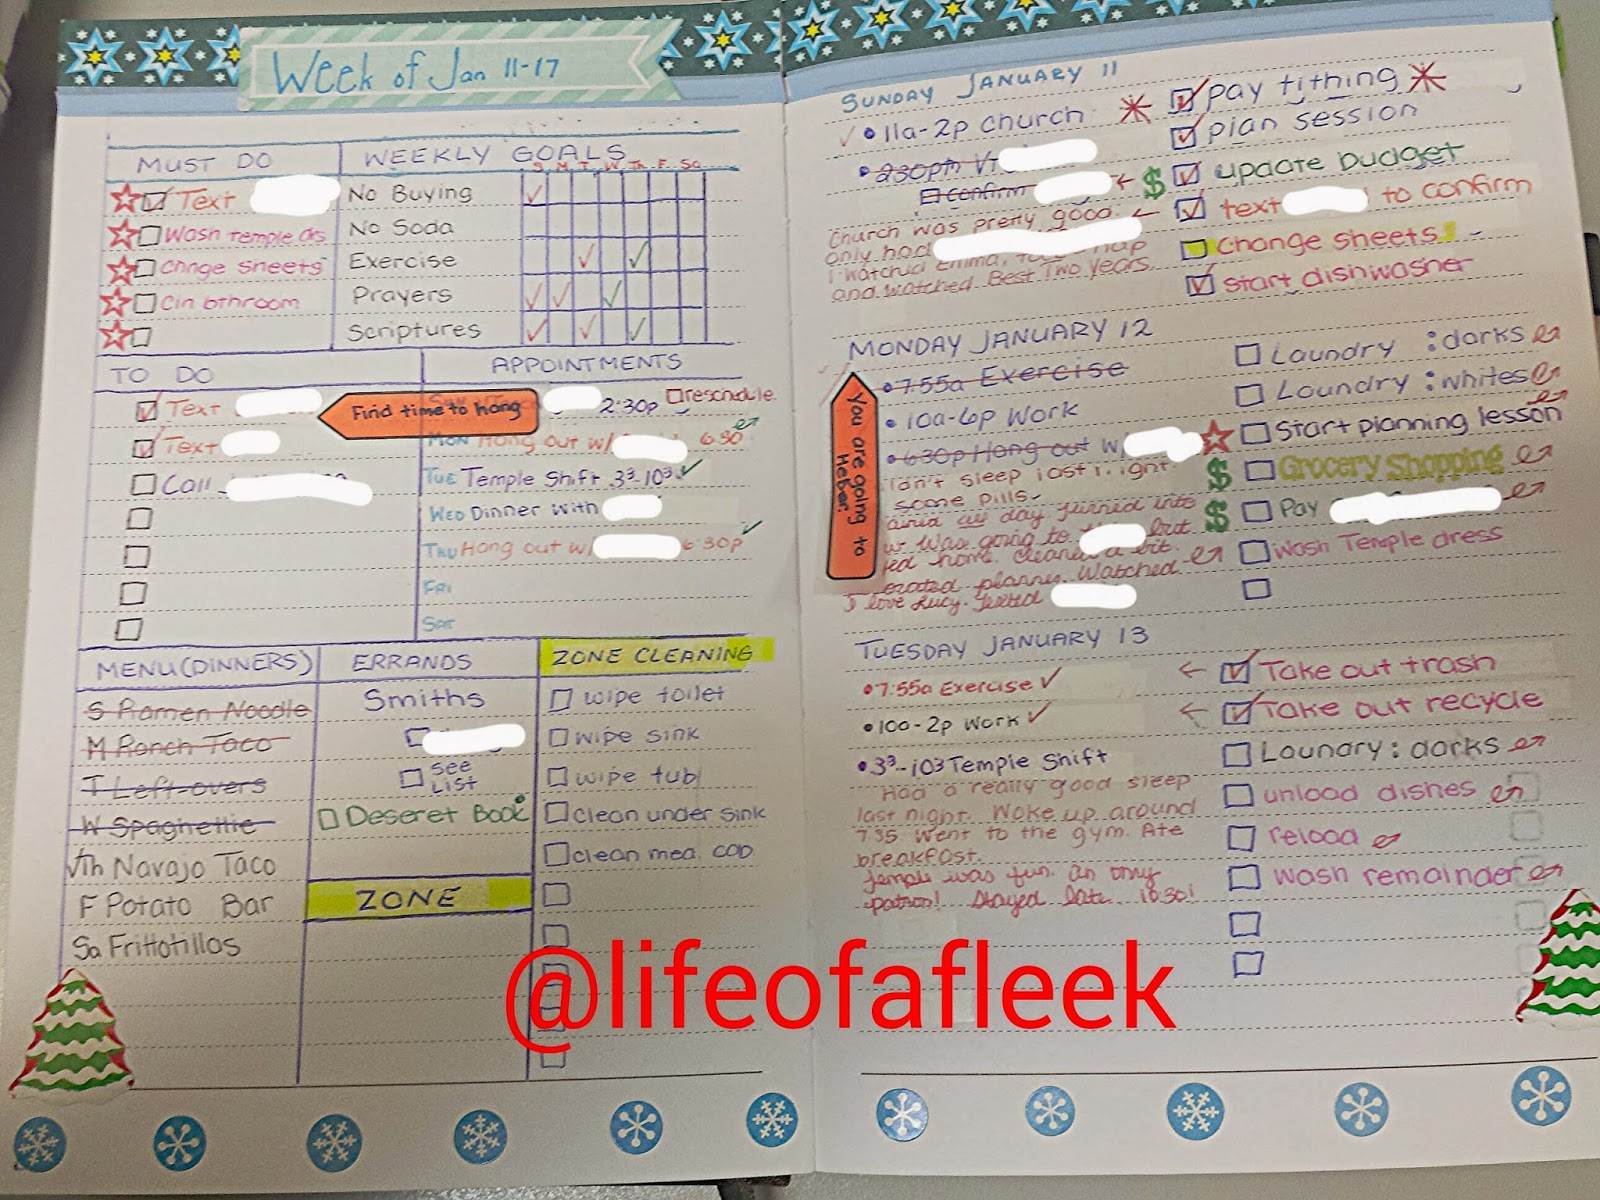 Week of Jan 11-17
MUST DO
Text
Wash temple
Chnge sheets
Cln bthroom
WEEKLY GOALS
S M T W Th F Sa
No Buying
No Soda
Exercise
Prayers
Scriptures
TO DO
Text
Text
Call
APPOINTMENTS
Find time to hang
2:30p reschedule
MON Hang out w/ 630
TUE Temple Shift 3³-10³
WED Dinner with
THU Hang out w/ 6:30p
FRI
SAT
MENU (DINNERS)
S Ramen Noodle
M Ranch Taco
T Left-overs
W Spaghettie
Th Navajo Taco
F Potato Bar
Sa Frittotillas
ERRANDS
Smiths
See
List
Deseret Book
ZONE
ZONE CLEANING
wipe toilet
wipe sink
wipe tub
clean under sink
clean med. cab
SUNDAY JANUARY 11
11a-2p Church
230pm VT
Confirm
Church was pretty good.
only had
I watched Emma, nap
and watched Best Two Years.
pay tithing
plan session
$ update budget
text to confirm
Change sheets
Start dishwasher
MONDAY JANUARY 12
7:55a Exercise
10a-6p Work
630p Hang out w
You are going to
Heber.
sleep last night.
some pills.
all day turned into
was going to but
home. cleaned a bit.
planner. Watched
I love Lucy. Texted
Laundry: darks
Laundry: whites
Start planning lesson
$ Grocery Shopping
$ Pay
Wash Temple dress
TUESDAY JANUARY 13
7:55a Exercise
10a-2p Work
3³-10³ Temple Shift
Had a really good sleep
last night. Woke up around
735 Went to the gym. Ate
breakfast.
Temple was fun. an only
patron! Stayed late. 1030!
Take out trash
Take out recycle
Laundry: darks
unload dishes
reload
wash remainder
@lifeofafleek